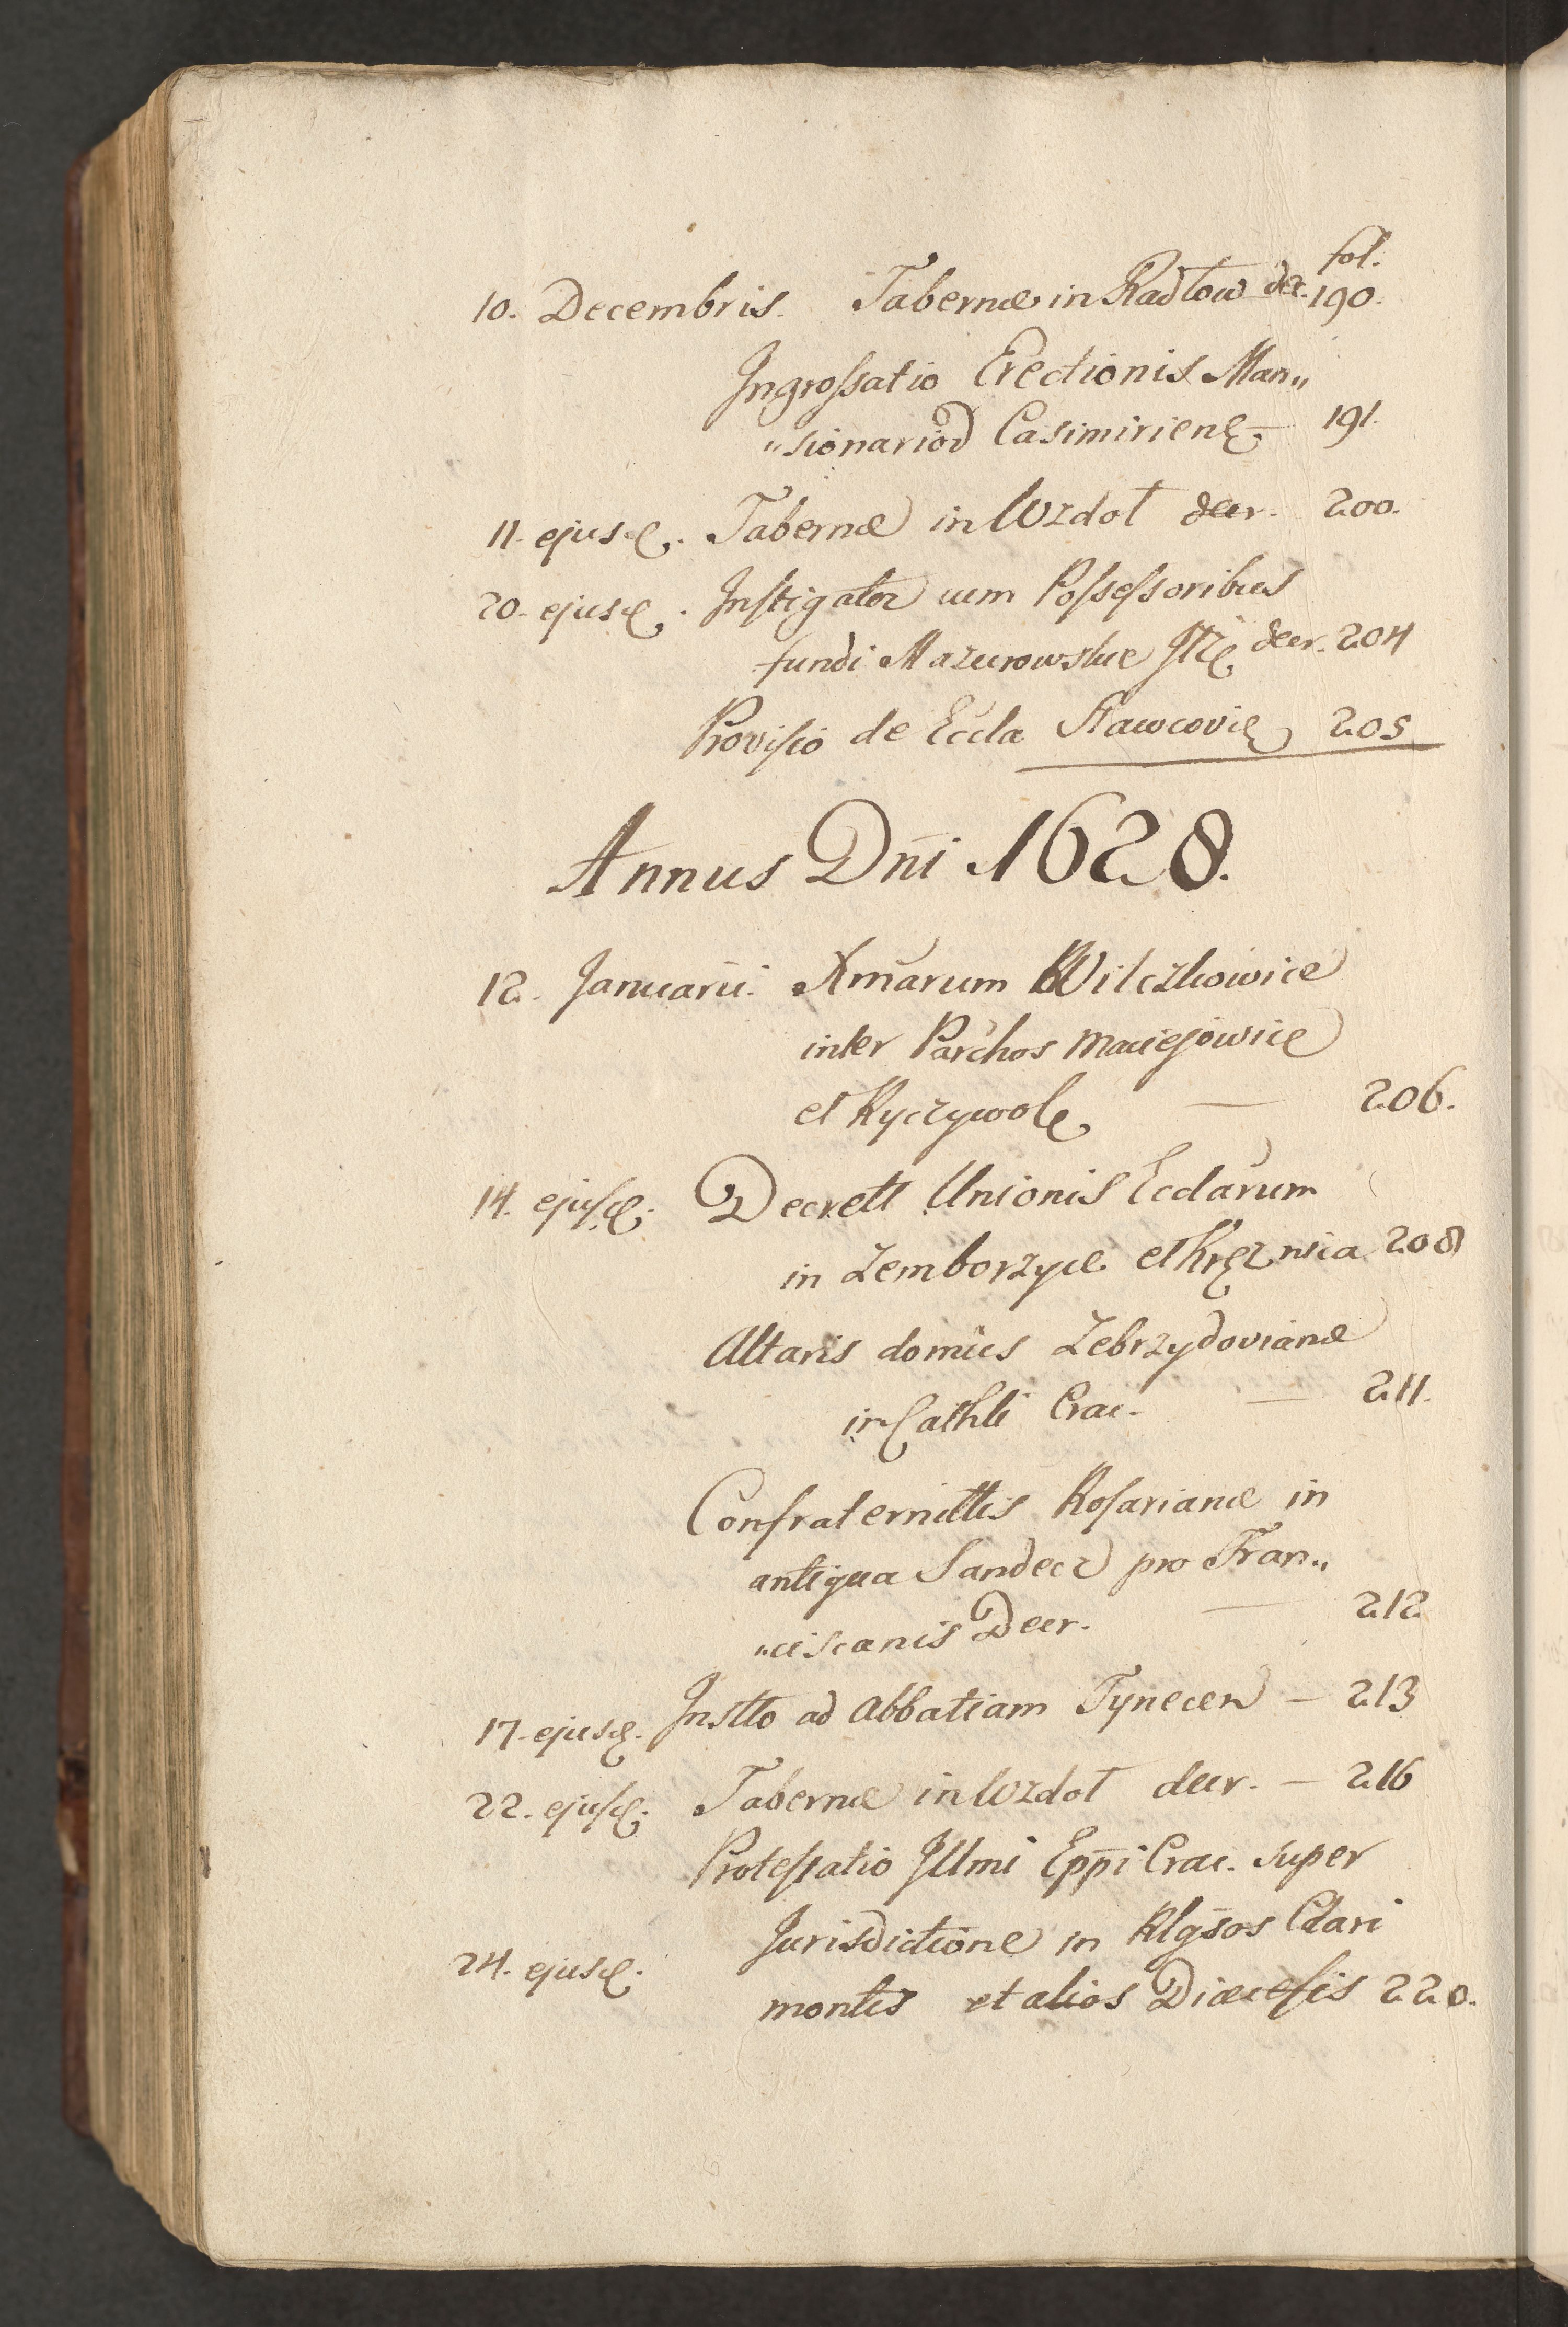 fol.
10. Decembris. Tabernæ in Radłow decr. 190.
Ingroſsatio Erectionis Man„
„sionarioꝝ Casimirienę — 191.
11. ejusdę. Tabernæ in Wzdoł decr. 200.
20. ejusdę. Inſtigator cum Poſseſsoribus
fundi Mazurowskie decr. 204
Proviſio de Eccla Sławcovię 205
Annus Dni 1628.
12. Januarii. Xmarum Wilczkowice
inter Parchos Maciejowice
et Ryczywolę — 206.
14. ejuſdę. Decrett Unionis Ecclarum
in Zemborzyce et Krężnica 208
Altaris domus Zebrzydovianæ
in Cathli Crac. — 211.
Confraternittis Roſarianæ in
antiqua Sandecz pro Fran„
„ciscanis Decr. — 212
17. ejusdę. Instto ad Abbatiam Tynecen — 213
22. ejuſdę. Tabernæ in Wzdoł decr. — 216
Proteſtatio Illmi Eppi Crac. super
Jurisdictione in Rlgsos Clari
24. ejusdę.
montis et alios Diœceſis 220.